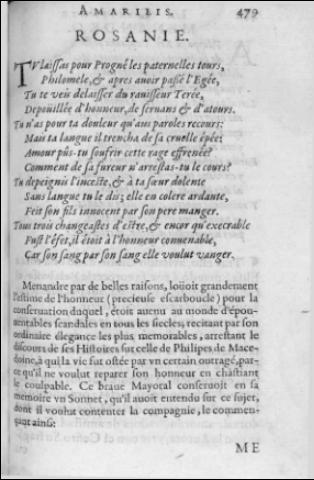 AMARILIS. 479
ROSANIE.
TV laissas pour Progné les paternelles tours,
Philomele, & apres auoir passé l'Egée,
Tu te veis delaisser du rauisseur Terée,
Depoüillée d'honneur, de seruans & d'atours.
Tu n'as pour ta douleur qu'aux paroles recours:
Mais ta langue il trencha de sa cruelle épée;
Amour pûs-tu soufrir cette rage effrenée?
Comment de sa fureur n'arrestas-tu le cours?
Tu depeignis l'inceste, & à ta sœur dolente
Sans langue tu le dis; elle en colere ardante,
Feit son fils innocent par son pere manger.
Tous trois changeastes d'estre, & encor qu'execrable
Fust l'éfet, il étoit à l'honneur conuenable,
Car son sang par son sang elle voulut vanger.
Menandre par de belles raisons, loüoit grandement
l'estime de l'honneur (precieuse escarboucle) pour la
conseruation duquel, étoit auenu au monde d'épou-
uentables scandales en tous les siecles, recitant par son
ordinaire élegance les plus memorables, arrestant le
discours de ses Histoires sur celle de Philipes de Mace-
doine, à qui la vie fut ostée par vn certain outragé, par-
ce qu'il ne voulut reparer son honneur en chastiant
le coulpable. Ce braue Mayoral conseruoit en sa
memoire vn Sonnet, qu'il auoit entendu sur ce sujet,
dont il voulut contenter la compagnie, le commen-
çant ainsi:
ME